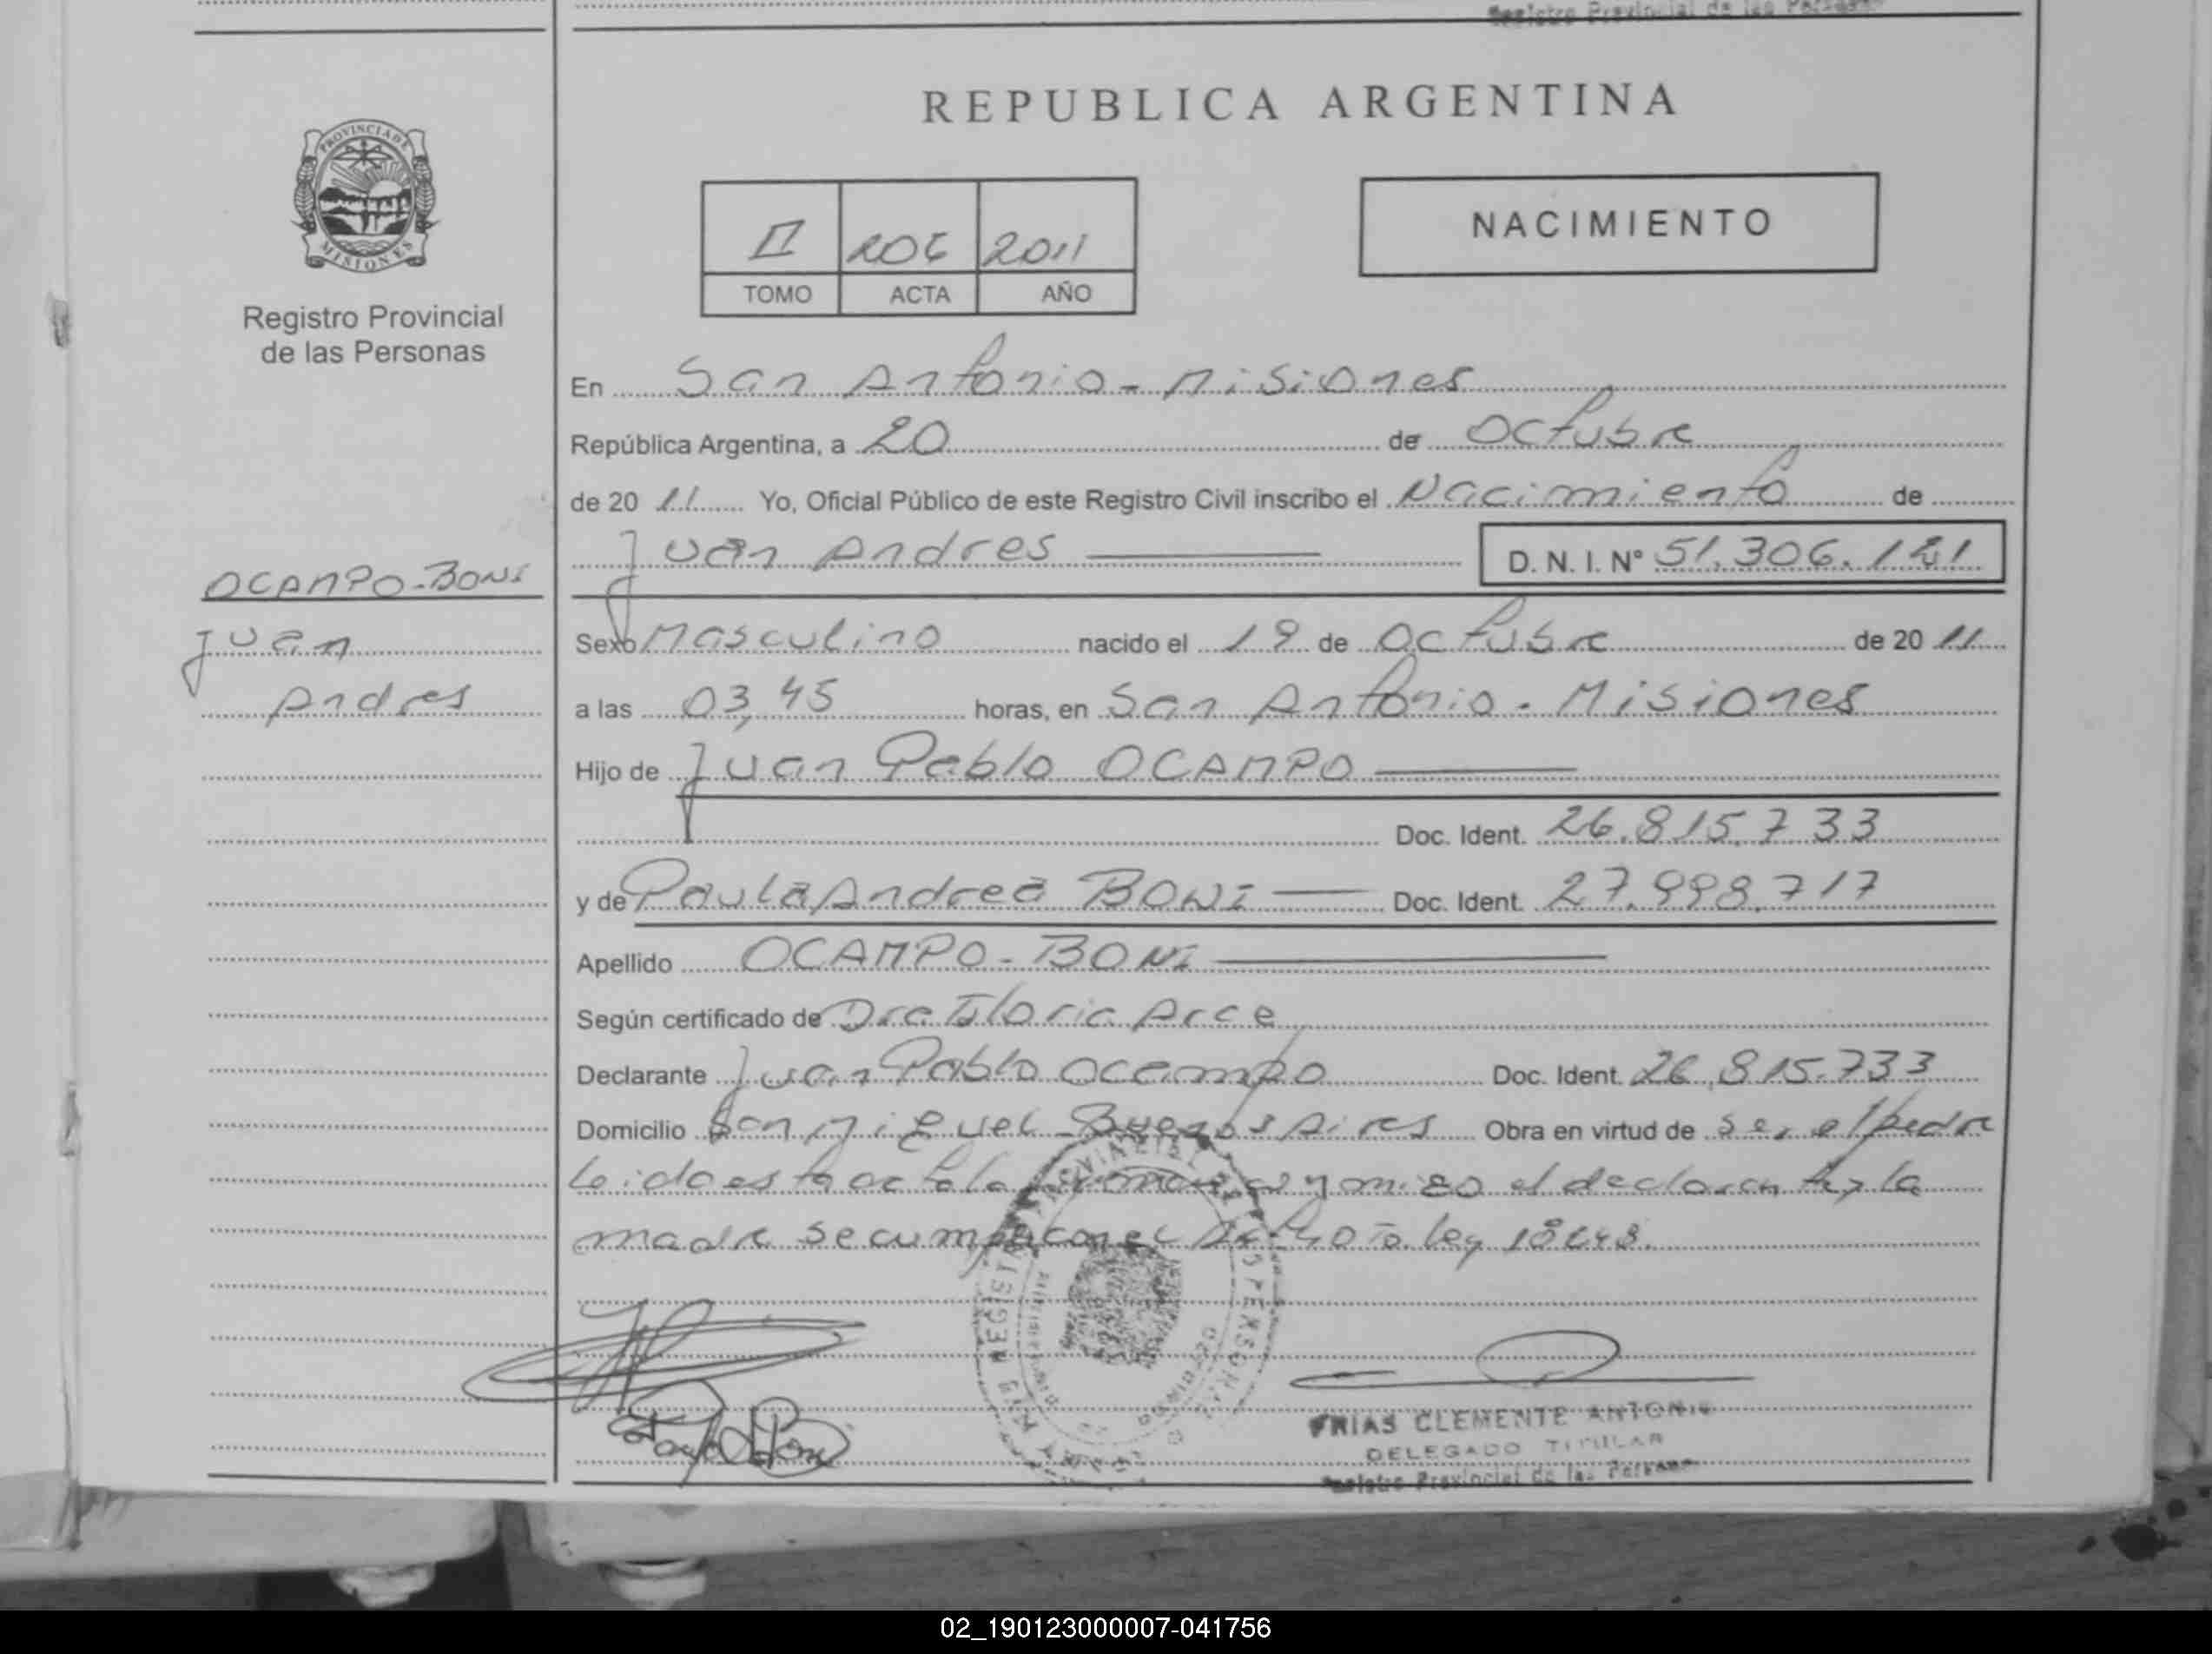 Registro Provincial de las Personas
REPUBLICA ARGENTINA
PROVINCIA DE
MISIONES
Registro Provincial
de las Personas
II 206 2011
TOMO ACTA AÑO
NACIMIENTO
En San Antonio - Misiones
República Argentina, a 20 de Octubre
de 20 11 Yo, Oficial Público de este Registro Civil inscribo el Nacimiento de
Juan Andres D. N. I. Nº 51.306.121
OCAMPO-BONI
Juan
Andres
Sexo Masculino nacido el 19 de Octubre de 20 11
a las 03,45 horas, en San Antonio - Misiones
Hijo de Juan Pablo OCAMPO
Doc. Ident. 26.815.733
y de Paula Andrea BONI Doc. Ident. 27.998.717
Apellido OCAMPO - BONI
Según certificado de Dra Gloria Arce
Declarante Juan Pablo Ocampo Doc. Ident. 26.815.733
Domicilio San Miguel - Buenos Aires Obra en virtud de ser el padre
Leida esta acta la firman conmigo el declarante y la
madre se cumple con el Art 40 ley
FRIAS CLEMENTE ANTONIO
DELEGADO TITULAR
Registro Provincial de las Personas
02_190123000007-041756